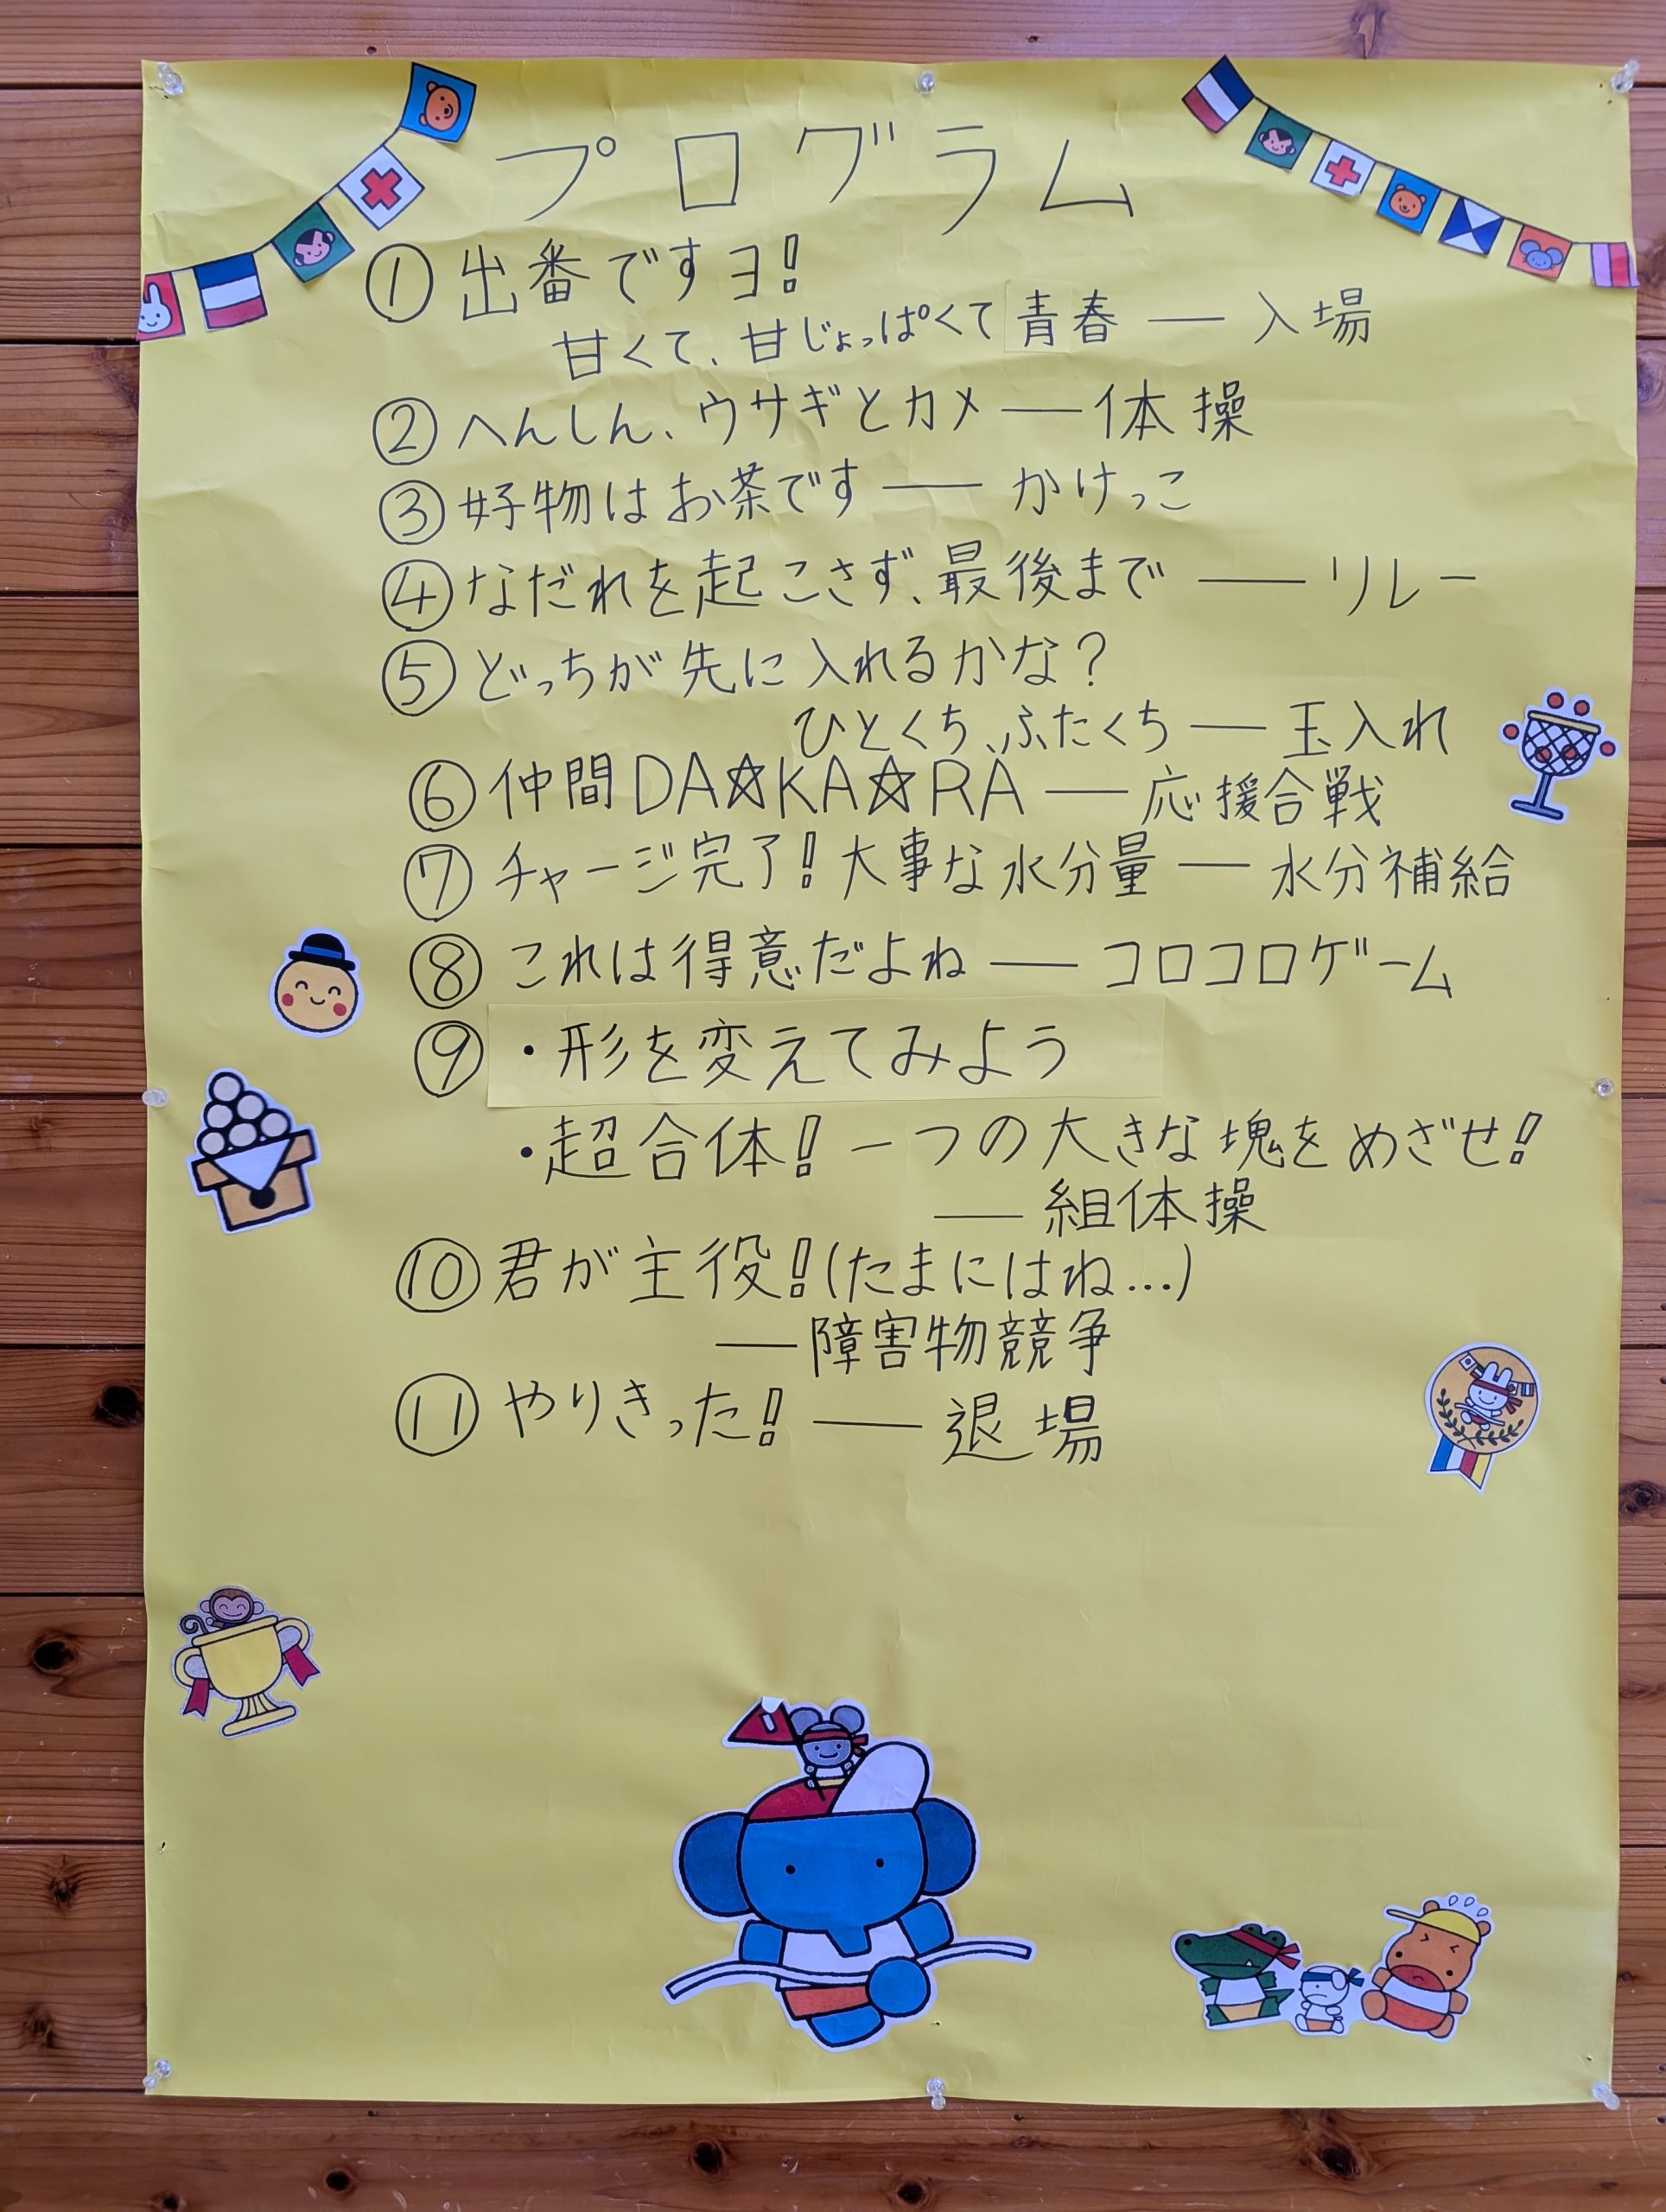 プログラム
① 出番ですヨ!
甘くて、甘じょっぱくて青春 — 入場
② へんしん、ウサギとカメ — 体操
③ 好物はお茶です — かけっこ
④ なだれを起こさず、最後まで — リレー
⑤ どっちが先に入れるかな?
ひとくち、ふたくち — 玉入れ
⑥ 仲間DA☆KA☆RA — 応援合戦
⑦ チャージ完了!大事な水分量 — 水分補給
⑧ これは得意だよね — コロコロゲーム
⑨ ・形を変えてみよう
・超合体!一つの大きな塊をめざせ!
— 組体操
⑩ 君が主役!(たまにはね…)
— 障害物競争
⑪ やりきった! — 退場